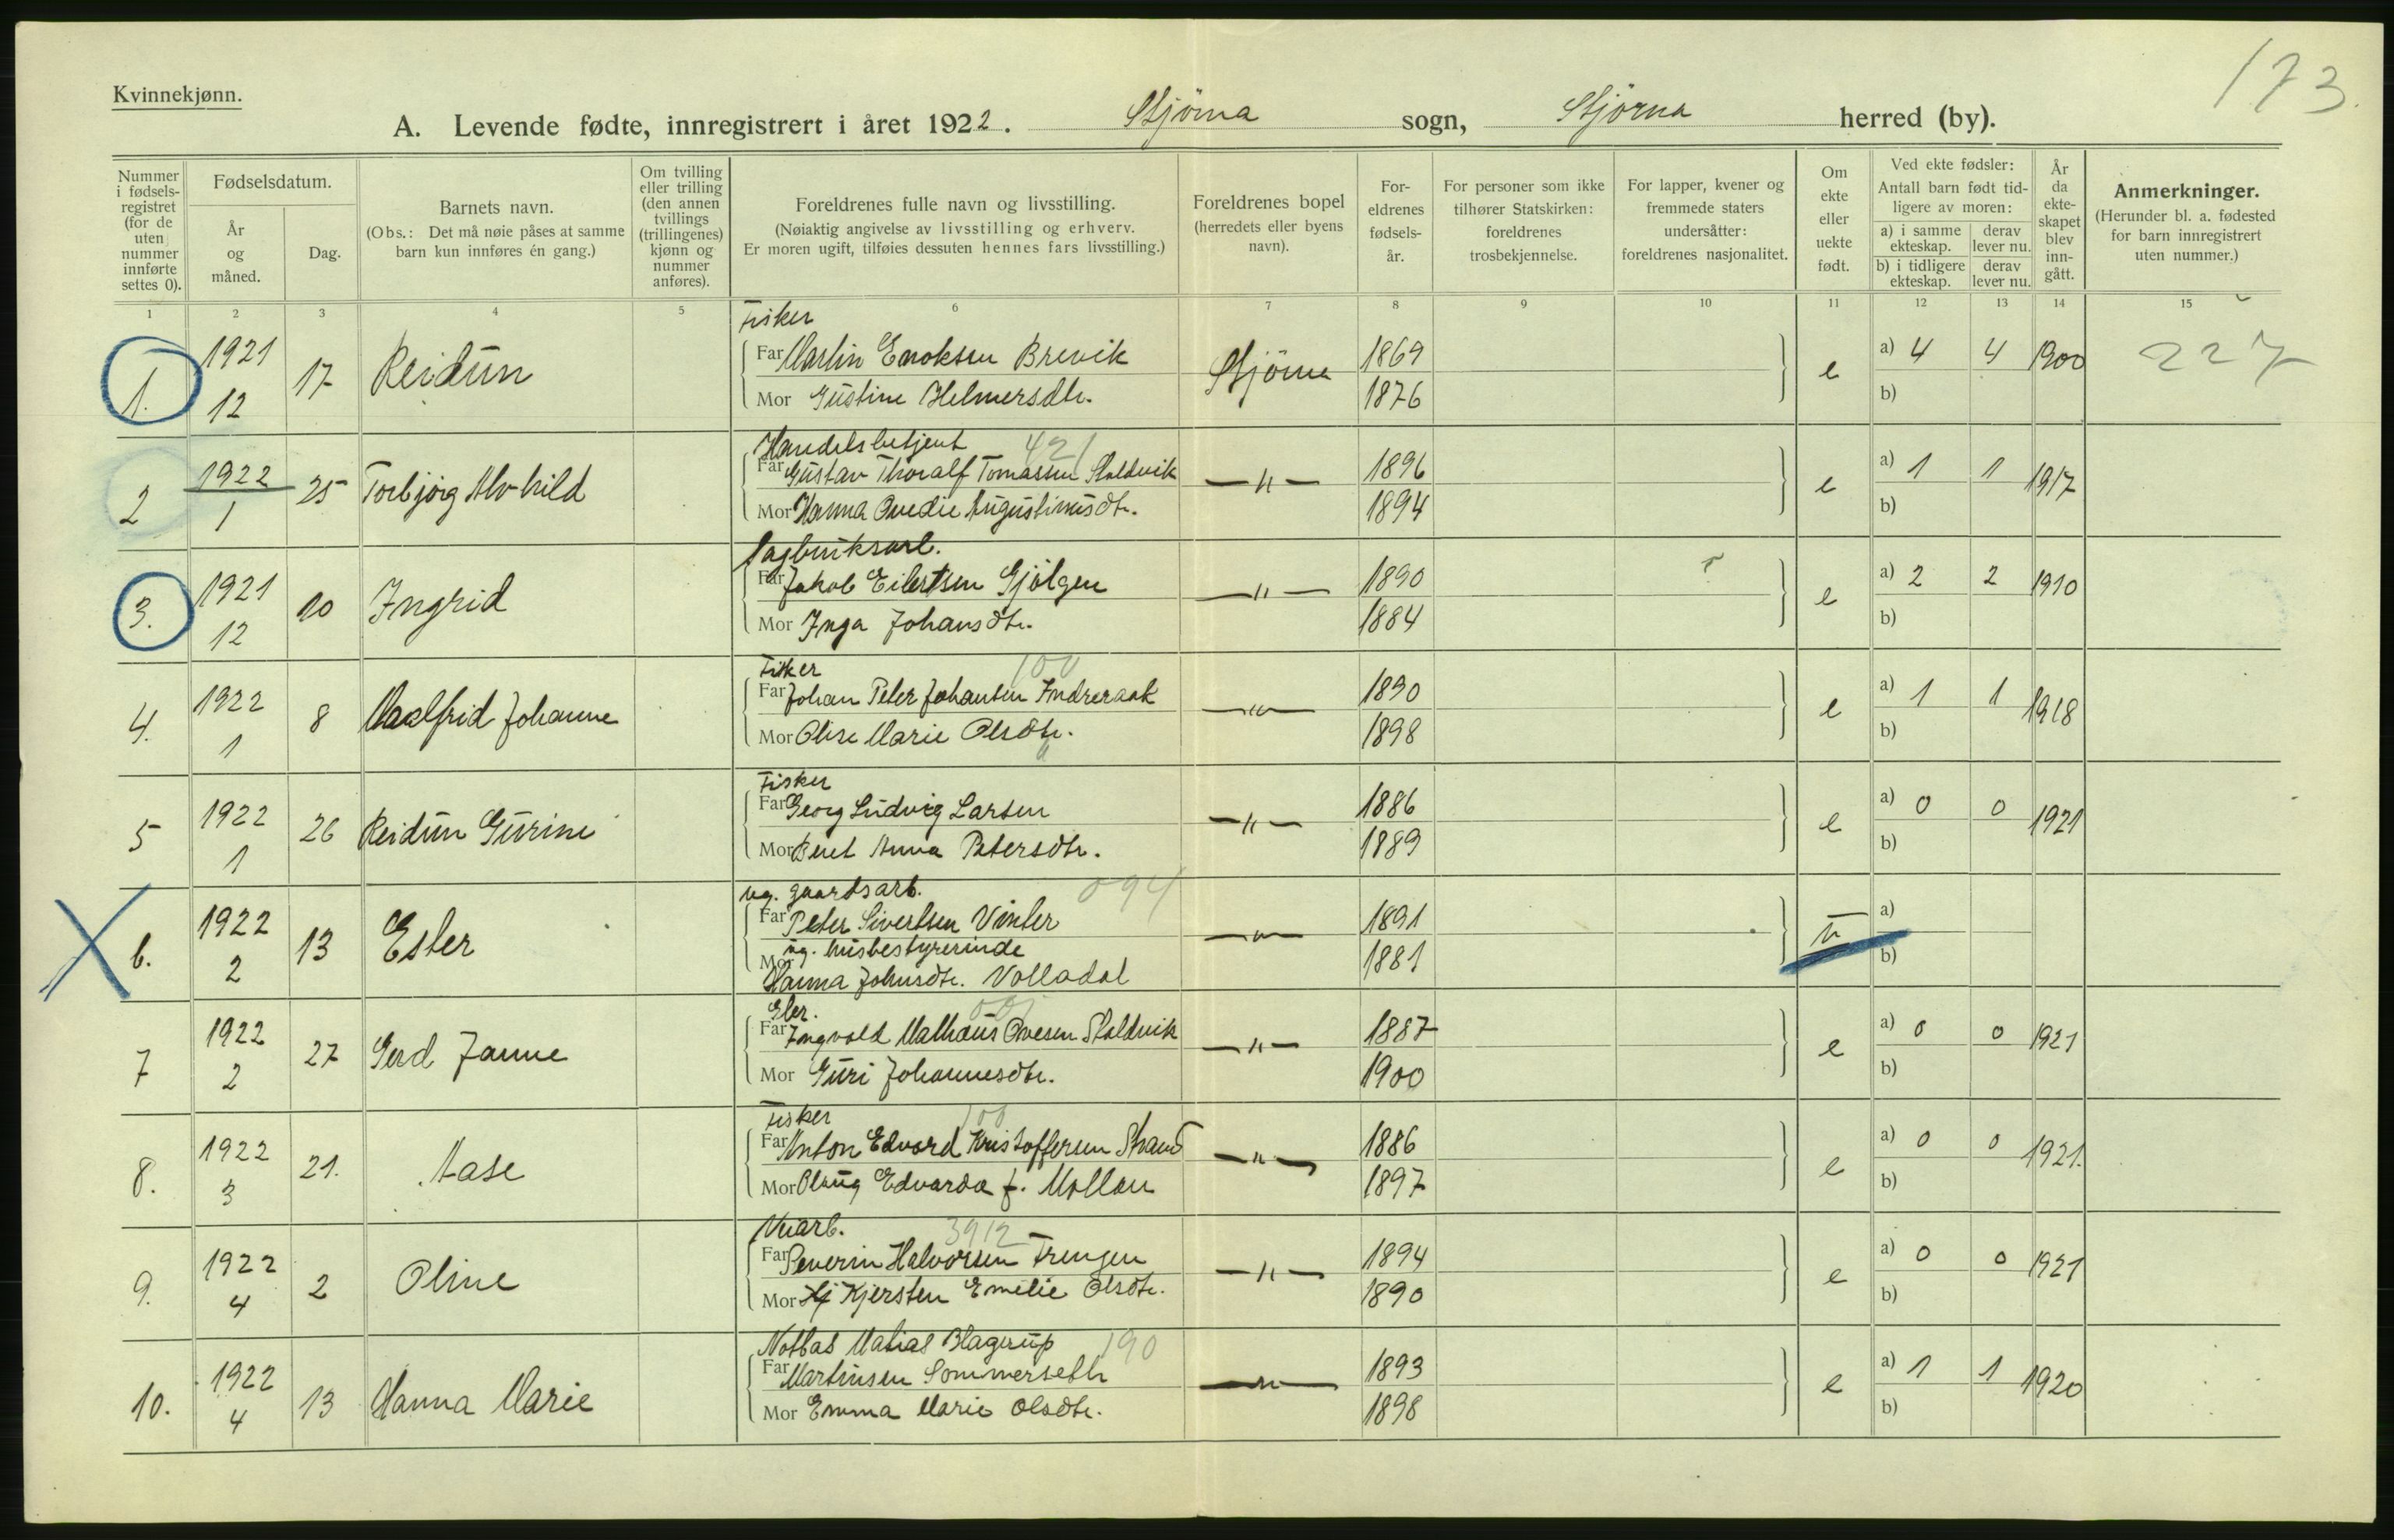 173.
Kvinnekjønn.
A. Levende fødte, innregistrert i året 1922. Stjörna sogn, Stjörna herred (by).
Nummer i fødsels-registret (for de uten nummer innførte settes 0).
Fødselsdatum.
År og måned.
Dag.
Barnets navn.
(Obs.: Det må nøie påses at samme barn kun innføres én gang.)
Om tvilling eller trilling (den annen tvillings (trillingenes) kjønn og nummer anføres).
Foreldrenes fulle navn og livsstilling.
(Nøiaktig angivelse av livsstilling og erhverv.
Er moren ugift, tilføies dessuten hennes fars livsstilling.)
Foreldrenes bopel (herredets eller byens navn).
For-eldrenes fødsels-år.
For personer som ikke tilhører Statskirken: foreldrenes trosbekjennelse.
For lapper, kvener og fremmede staters undersåtter: foreldrenes nasjonalitet.
Om ekte eller uekte født.
Ved ekte fødsler:
Antall barn født tid-ligere av moren:
a) i samme ekteskap. derav lever nu.
b) i tidligere ekteskap. derav lever nu.
År da ekte-skapet blev inn-gått.
Anmerkninger.
(Herunder bl. a. fødested for barn innregistrert uten nummer.)
1 2 3 4 5 6 7 8 9 10 11 12 13 14 15
Fisker
1. 1921 12 17 Reidun
Far Martin Enoksen Brevik Stjörna 1869 e a) 4 4 1900 227
Mor Gustine Helmersdtr. 1876 b)
Handelsbetjent 421
2 1922 1 25 Torbjörg Alvhild
Far Gustav Thoralf Tomassen Stoldvik —"— 1896 e a) 1 1 1917
Mor Hanna Ovedie Augustinusdtr. 1894 b)
Sagbruksarb.
3. 1921 12 10 Ingrid
Far Jakob Eilertsen Gjölgen —"— 1890 e a) 2 2 1910
Mor Inga Johansdtr. 1884 b)
Fisker 100
4. 1922 1 8 Maalfrid Johanne
Far Johan Peter Johansen Indreraak —"— 1890 e a) 1 1 1918
Mor Olise Marie Olsdtr. 1898 b)
Fisker
5 1922 1 26 Reidun Gurine
Far Georg Ludvig Larsen —"— 1886 e a) 0 0 1921
Mor Beret Anna Petersdtr. 1889 b)
ug. gaardsarb. 094
6. 1922 2 13 Ester
Far Peter Sivertsen Vinter —"— 1891 u a)
ug. husbestyrerinde
Mor Hanna Johnsdtr. Volladal 1881 b)
Eier. 001
7 1922 2 27 Gerd Janne
Far Ingvald Mathæus Ovesen Stoldvik —"— 1887 e a) 0 0 1921
Mor Guri Johannesdtr. 1900 b)
Fisker 100
8. 1922 3 21. Aase
Far Anton Edvard Kristoffersen Strand —"— 1886 e a) 0 0 1921.
Mor Olaug Edvarda f. Mollan 1897 b)
Veiarb. 3912
9. 1922 4 2 Oline
Far Severin Halvorsen Trengen —"— 1894 e a) 0 0 1921
Mor Kjersten Emelie Olsdtr. 1890 b)
Notbas Matias Hagerup 190
10. 1922 4 13 Hanna Marie
Far Martinsen Sommerseth —"— 1893 e a) 1 1 1920
Mor Emma Marie Olsdtr. 1898 b)